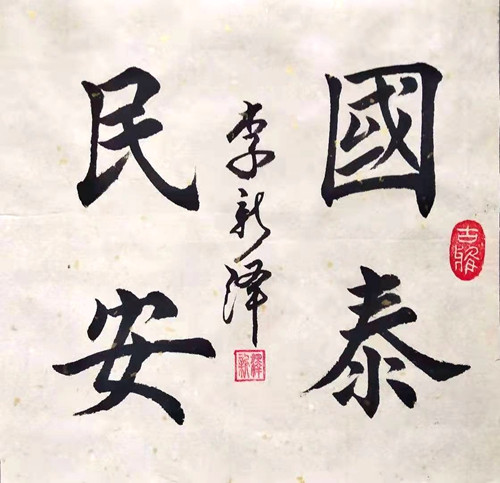 國泰
民安
李新泽